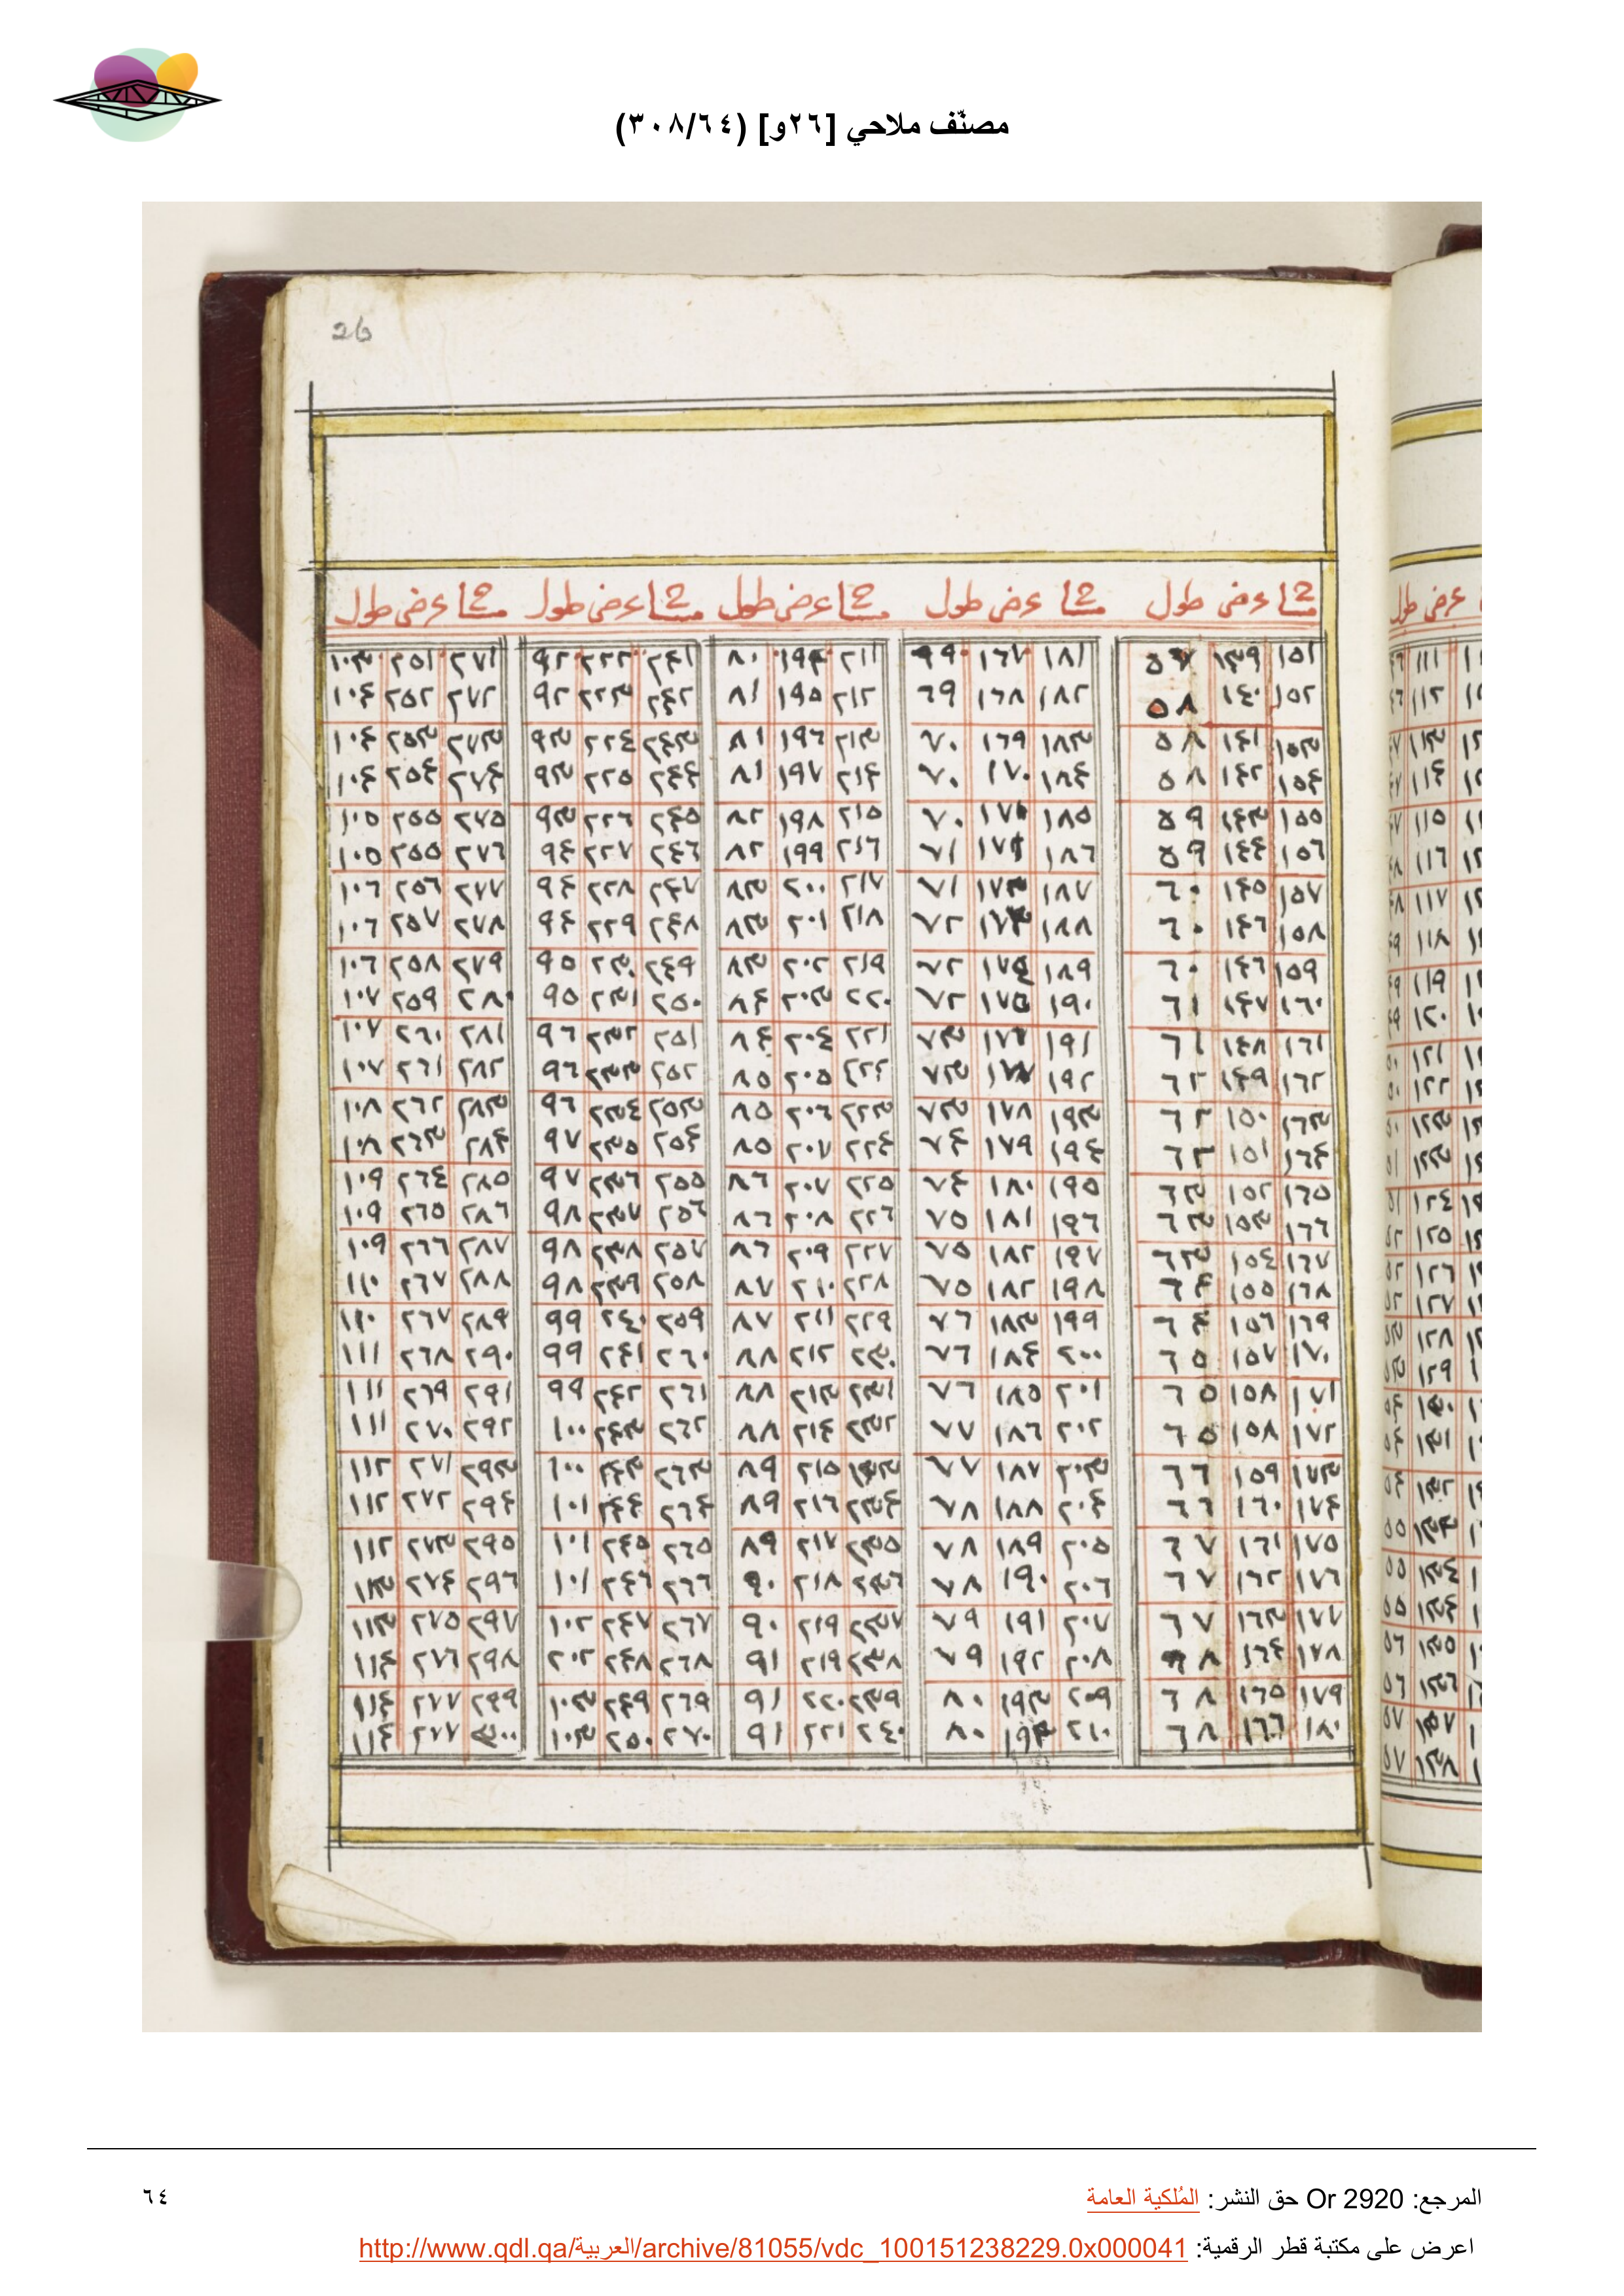 مصنّف ملاحي [٢٦و] (٣٠٨/٦٤)
26
مسا عرض طول مسا عرض طول مسا عرض طول مسا عرض طول مسا عرض طول
١٥١ ١٣٩ ٥٧ ١٨١ ١٦٧ ٦٩ ٢١١ ١٩٤ ٨٠ ٢٤١ ٢٢٢ ٩٢ ٢٧١ ٢٥١ ١٠٣
١٥٢ ١٤٠ ٥٨ ١٨٢ ١٦٨ ٦٩ ٢١٢ ١٩٥ ٨١ ٢٤٢ ٢٢٣ ٩٢ ٢٧٢ ٢٥٢ ١٠٤
١٥٣ ١٤١ ٥٨ ١٨٣ ١٦٩ ٧٠ ٢١٣ ١٩٦ ٨١ ٢٤٣ ٢٢٤ ٩٣ ٢٧٣ ٢٥٣ ١٠٤
١٥٤ ١٤٢ ٥٨ ١٨٤ ١٧٠ ٧٠ ٢١٤ ١٩٧ ٨١ ٢٤٤ ٢٢٥ ٩٣ ٢٧٤ ٢٥٤ ١٠٤
١٥٥ ١٤٣ ٥٩ ١٨٥ ١٧١ ٧٠ ٢١٥ ١٩٨ ٨٢ ٢٤٥ ٢٢٦ ٩٣ ٢٧٥ ٢٥٥ ١٠٥
١٥٦ ١٤٤ ٥٩ ١٨٦ ١٧١ ٧١ ٢١٦ ١٩٩ ٨٢ ٢٤٦ ٢٢٧ ٩٤ ٢٧٦ ٢٥٥ ١٠٥
١٥٧ ١٤٥ ٦٠ ١٨٧ ١٧٢ ٧١ ٢١٧ ٢٠٠ ٨٣ ٢٤٧ ٢٢٨ ٩٤ ٢٧٧ ٢٥٦ ١٠٦
١٥٨ ١٤٦ ٦٠ ١٨٨ ١٧٣ ٧٢ ٢١٨ ٢٠١ ٨٣ ٢٤٨ ٢٢٩ ٩٤ ٢٧٨ ٢٥٧ ١٠٦
١٥٩ ١٤٦ ٦٠ ١٨٩ ١٧٤ ٧٢ ٢١٩ ٢٠٢ ٨٣ ٢٤٩ ٢٣٠ ٩٥ ٢٧٩ ٢٥٨ ١٠٦
١٦٠ ١٤٧ ٦١ ١٩٠ ١٧٥ ٧٢ ٢٢٠ ٢٠٣ ٨٤ ٢٥٠ ٢٣١ ٩٥ ٢٨٠ ٢٥٩ ١٠٧
١٦١ ١٤٨ ٦١ ١٩١ ١٧٦ ٧٣ ٢٢١ ٢٠٤ ٨٤ ٢٥١ ٢٣٢ ٩٦ ٢٨١ ٢٦٠ ١٠٧
١٦٢ ١٤٩ ٦٢ ١٩٢ ١٧٧ ٧٣ ٢٢٢ ٢٠٥ ٨٥ ٢٥٢ ٢٣٣ ٩٦ ٢٨٢ ٢٦١ ١٠٧
١٦٣ ١٥٠ ٦٢ ١٩٣ ١٧٨ ٧٣ ٢٢٣ ٢٠٦ ٨٥ ٢٥٣ ٢٣٤ ٩٦ ٢٨٣ ٢٦٢ ١٠٨
١٦٤ ١٥١ ٦٢ ١٩٤ ١٧٩ ٧٤ ٢٢٤ ٢٠٧ ٨٥ ٢٥٤ ٢٣٥ ٩٧ ٢٨٤ ٢٦٣ ١٠٨
١٦٥ ١٥٢ ٦٣ ١٩٥ ١٨٠ ٧٤ ٢٢٥ ٢٠٧ ٨٦ ٢٥٥ ٢٣٦ ٩٧ ٢٨٥ ٢٦٤ ١٠٩
١٦٦ ١٥٣ ٦٣ ١٩٦ ١٨١ ٧٥ ٢٢٦ ٢٠٨ ٨٦ ٢٥٦ ٢٣٧ ٩٨ ٢٨٦ ٢٦٥ ١٠٩
١٦٧ ١٥٤ ٦٣ ١٩٧ ١٨٢ ٧٥ ٢٢٧ ٢٠٩ ٨٦ ٢٥٧ ٢٣٨ ٩٨ ٢٨٧ ٢٦٦ ١٠٩
١٦٨ ١٥٥ ٦٤ ١٩٨ ١٨٢ ٧٥ ٢٢٨ ٢١٠ ٨٧ ٢٥٨ ٢٣٩ ٩٨ ٢٨٨ ٢٦٧ ١١٠
١٦٩ ١٥٦ ٦٤ ١٩٩ ١٨٣ ٧٦ ٢٢٩ ٢١١ ٨٧ ٢٥٩ ٢٤٠ ٩٩ ٢٨٩ ٢٦٧ ١١٠
١٧٠ ١٥٧ ٦٥ ٢٠٠ ١٨٤ ٧٦ ٢٣٠ ٢١٢ ٨٨ ٢٦٠ ٢٤١ ٩٩ ٢٩٠ ٢٦٨ ١١١
١٧١ ١٥٨ ٦٥ ٢٠١ ١٨٥ ٧٦ ٢٣١ ٢١٣ ٨٨ ٢٦١ ٢٤٢ ٩٩ ٢٩١ ٢٦٩ ١١١
١٧٢ ١٥٨ ٦٥ ٢٠٢ ١٨٦ ٧٧ ٢٣٢ ٢١٤ ٨٨ ٢٦٢ ٢٤٣ ١٠٠ ٢٩٢ ٢٧٠ ١١١
١٧٣ ١٥٩ ٦٦ ٢٠٣ ١٨٧ ٧٧ ٢٣٣ ٢١٥ ٨٩ ٢٦٣ ٢٤٣ ١٠٠ ٢٩٣ ٢٧١ ١١٢
١٧٤ ١٦٠ ٦٦ ٢٠٤ ١٨٨ ٧٨ ٢٣٤ ٢١٦ ٨٩ ٢٦٤ ٢٤٤ ١٠١ ٢٩٤ ٢٧٢ ١١٢
١٧٥ ١٦١ ٦٧ ٢٠٥ ١٨٩ ٧٨ ٢٣٥ ٢١٧ ٨٩ ٢٦٥ ٢٤٥ ١٠١ ٢٩٥ ٢٧٣ ١١٢
١٧٦ ١٦٢ ٦٧ ٢٠٦ ١٩٠ ٧٨ ٢٣٦ ٢١٨ ٩٠ ٢٦٦ ٢٤٦ ١٠١ ٢٩٦ ٢٧٤ ١١٣
١٧٧ ١٦٣ ٦٧ ٢٠٧ ١٩١ ٧٩ ٢٣٧ ٢١٩ ٩٠ ٢٦٧ ٢٤٧ ١٠٢ ٢٩٧ ٢٧٥ ١١٣
١٧٨ ١٦٤ ٦٨ ٢٠٨ ١٩٢ ٧٩ ٢٣٨ ٢١٩ ٩١ ٢٦٨ ٢٤٨ ٢٠٢ ٢٩٨ ٢٧٦ ١١٤
١٧٩ ١٦٥ ٦٨ ٢٠٩ ١٩٣ ٨٠ ٢٣٩ ٢٢٠ ٩١ ٢٦٩ ٢٤٩ ١٠٣ ٢٩٩ ٢٧٧ ١١٤
١٨٠ ١٦٦ ٦٨ ٢١٠ ١٩٤ ٨٠ ٢٤٠ ٢٢١ ٩١ ٢٧٠ ٢٥٠ ١٠٣ ٣٠٠ ٢٧٧ ١١٤
المرجع: Or 2920 حق النشر: المُلكية العامة
٦٤
اعرض على مكتبة قطر الرقمية: http://www.qdl.qa/العربية/archive/81055/vdc_100151238229.0x000041